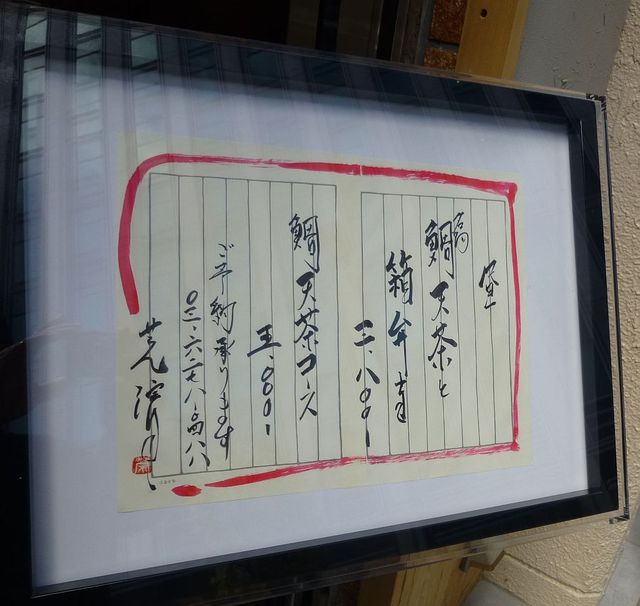 昼
鯛天茶と
箱弁当
三・八〇〇ー
鯛天茶コース
五・〇〇〇ー
ご予約承ります
〇三・六二七八・〇四八八